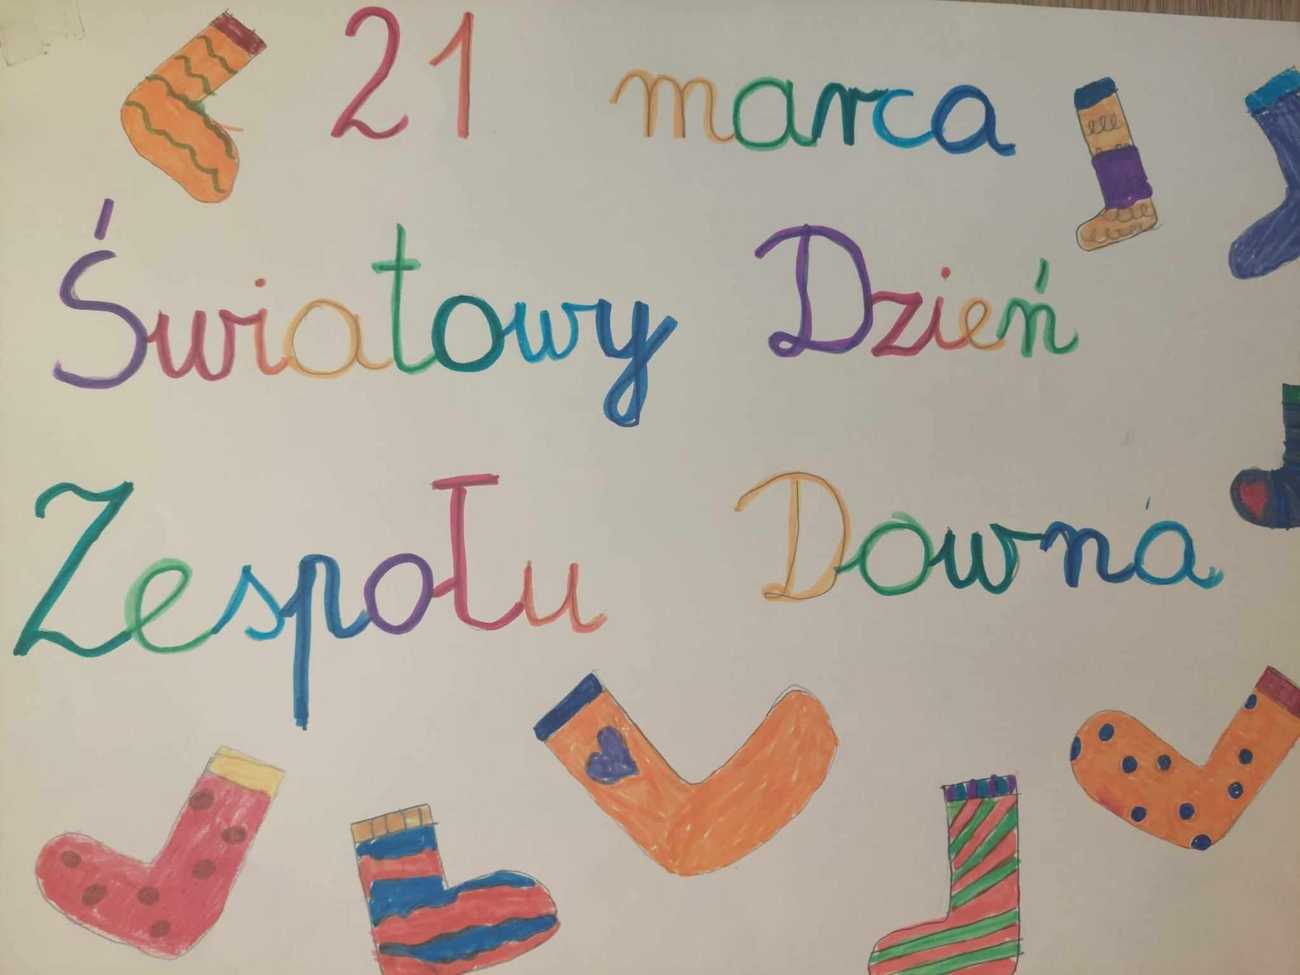 21 marca
Światowy Dzień
Zespołu Downa